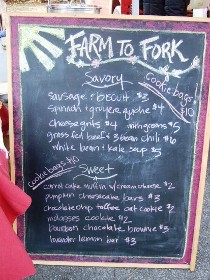 FARM TO FORK
Savory
cookie bags!
$10
sausage + biscuit $3
spinach + gruyere quiche $4
cheese grits $4 with greens $5
grass fed beef + 3 bean chili $6
white bean + kale soup $5
cookie bags $10
Sweet
carrot cake muffin w/ cream cheese $2
pumpkin cheesecake bars $3
chocolate chip toffee oat cookie $2
molasses cookie $2
bourbon chocolate brownie $3
lavender lemon bar $3